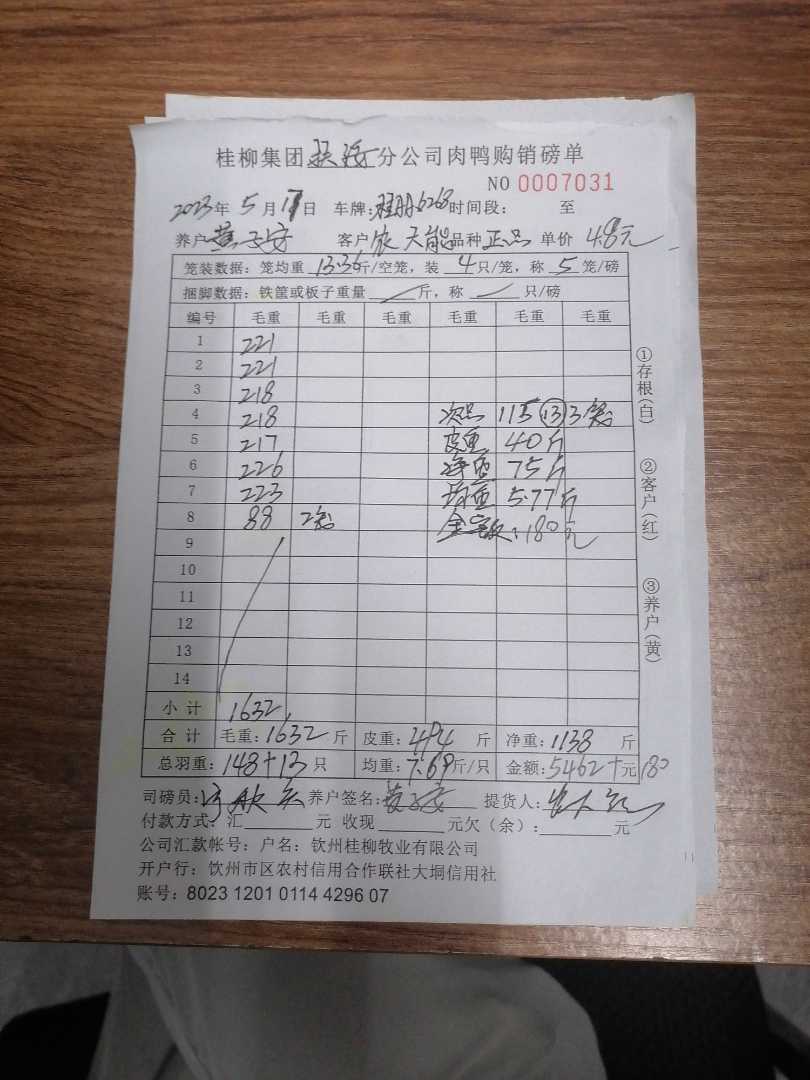 桂柳集团 分公司肉鸭购销磅单
NO 0007031
2023年 5 月 17日 车牌: 6268 时间段: 至
养户 黄子安 客户 农天能 品种 正品 单价 4.8元
笼装数据:笼均重 13.36斤/空笼,装 4 只/笼,称 5 笼/磅
捆脚数据:铁筐或板子重量 斤,称 只/磅
编号 毛重 毛重 毛重 毛重 毛重 毛重
1 221
2 221
3 218
4 218 次品 115 13 3笼
5 217 皮重 40斤
6 226 净重 75斤
7 223 均重 5.77斤
8 88 2笼 金额:180元
9
10
11
12
13
14
小计 1632
合计 毛重:1632 斤 皮重:494 斤 净重:1138 斤
总羽重:148+13 只 均重:7.69斤/只 金额:5462+元180
司磅员: 养户签名:黄子安 提货人:
付款方式:汇 元 收现 元欠(余): 元
公司汇款帐号:户名:钦州桂柳牧业有限公司
开户行:钦州市区农村信用合作联社大垌信用社
账号:8023 1201 0114 4296 07
①存根(白)
②客户(红)
③养户(黄)